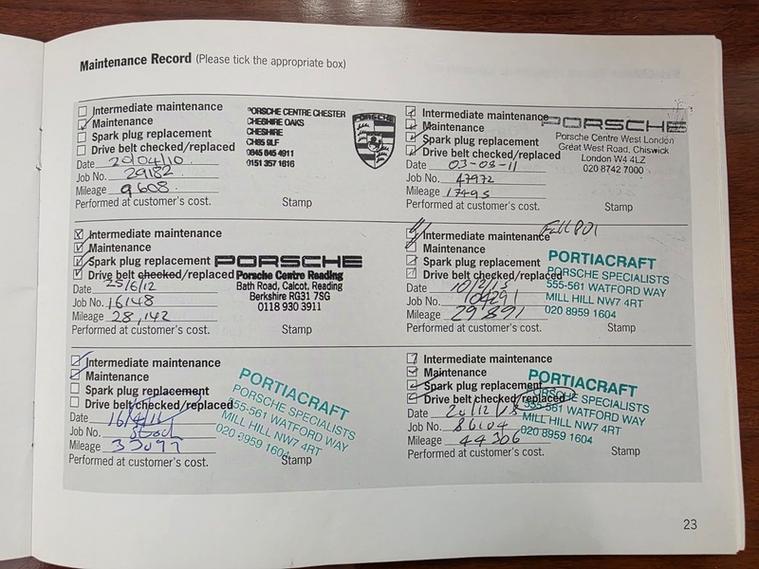 Maintenance Record (Please tick the appropriate box)
Intermediate maintenance
Maintenance
Spark plug replacement
Drive belt checked/replaced
Date 20/04/10.
Job No. 29182.
Mileage 9608.
Performed at customer's cost.
Stamp
PORSCHE CENTRE CHESTER
CHESHIRE OAKS
CHESHIRE
CH65 9LF
0845 845 4911
0151 357 1616
PORSCHE
Intermediate maintenance
Maintenance
Spark plug replacement
Drive belt checked/replaced
Date 03-08-11
Job No. 47972
Mileage 17495
Performed at customer's cost.
Stamp
PORSCHE
Porsche Centre West London
Great West Road, Chiswick
London W4 4LZ
020 8742 7000
Intermediate maintenance
Maintenance
Spark plug replacement
Drive belt checked/replaced
Date 25/6/12
Job No. 16148
Mileage 28,142
Performed at customer's cost.
Stamp
PORSCHE
Porsche Centre Reading
Bath Road, Calcot, Reading
Berkshire RG31 7SG
0118 930 3911
Intermediate maintenance
Maintenance
Spark plug replacement
Drive belt checked/replaced
Date 10/2/15
Job No. 104291
Mileage 29891
Performed at customer's cost.
Stamp
PORTIACRAFT
PORSCHE SPECIALISTS
555-561 WATFORD WAY
MILL HILL NW7 4RT
020 8959 1604
Intermediate maintenance
Maintenance
Spark plug replacement
Drive belt checked/replaced
Date
Job No.
Mileage
Performed at customer's cost.
Stamp
PORTIACRAFT
PORSCHE SPECIALISTS
555-561 WATFORD WAY
MILL HILL NW7 4RT
020 8959 1604
Intermediate maintenance
Maintenance
Spark plug replacement
Drive belt checked/replaced
Date
Job No. 86104
Mileage 44306
Performed at customer's cost.
Stamp
PORTIACRAFT
PORSCHE SPECIALISTS
555-561 WATFORD WAY
MILL HILL NW7 4RT
020 8959 1604
23